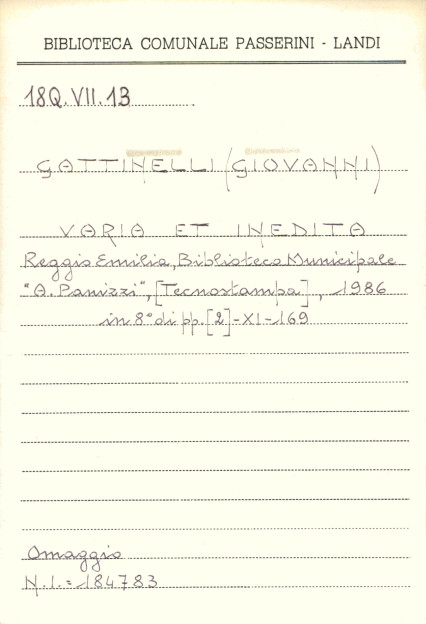 BIBLIOTECA COMUNALE PASSERINI - LANDI
18Q.VII.13
GATTINELLI (GIOVANNI)
VARIA ET INEDITA
Reggio Emilia, Biblioteca Municipale
"A. Panizzi", [Tecnostampa], 1986
in 8° di pp. [2]-XI-169
Omaggio
N.I.= 184783